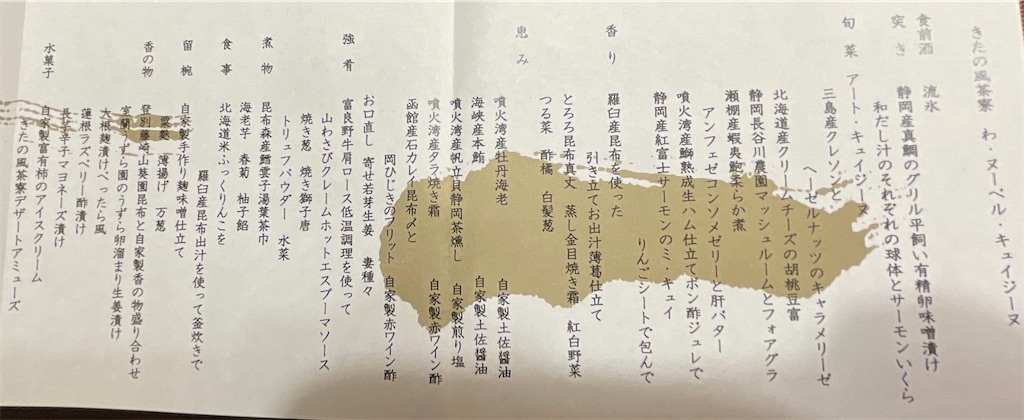 きたの風茶寮　わ・ヌーベル・キュイジーヌ
食前酒　流氷
突き　静岡産真鯛のグリル平飼い有精卵味噌漬け
和だし汁のそれぞれの球体とサーモンいくら
旬菜　アート・キュイジーヌ
三島産クレソンと
ヘーゼルナッツのキャラメリーゼ
北海道産クリームチーズの胡桃豆富
静岡長谷川農園マッシュルームとフォアグラ
瀬棚産蝦夷鮑柔らか煮
アンフェゼコンソメゼリーと肝バター
噴火湾産鰤熟成生ハム仕立てポン酢ジュレで
静岡産紅富士サーモンのミ・キュイ
りんごシートで包んで
香り　羅臼産昆布を使った
引き立てお出汁薄葛仕立て
とろろ昆布真丈　蒸し金目焼き霜　紅白野菜
つる菜　酢橘　白髪葱
恵み　噴火湾産牡丹海老　自家製土佐醤油
海峡産本鮪　自家製土佐醤油
噴火湾産帆立貝静岡茶燻し　自家製煎り塩
噴火湾産タラ焼き霜　自家製赤ワイン酢
函館産石カレイ昆布〆と
岡ひじきのフリット　自家製赤ワイン酢
お口直し　寄せ若芽生姜　妻種々
強肴　富良野牛肩ロース低温調理を使って
山わさびクリームホットエスプーマソース
焼き葱　焼き獅子唐
トリュフパウダー　水菜
煮物　昆布森産鱈雲子湯葉茶巾
海老芋　春菊　柚子餡
食事　北海道米ふっくりんこを
羅臼産昆布出汁を使って釜炊きで
留椀　自家製手作り麹味噌仕立て
粟麩　薄揚げ　万葱
香の物　登別藤崎山葵園昆布と自家製香の物盛り合わせ
室蘭うずら園のうずら卵溜まり生姜漬け
大根麹漬けべったら風
蓮根ラズベリー酢漬け
長芋辛子マヨネーズ漬け
水菓子　自家製富有柿のアイスクリーム
きたの風茶寮デザートアミューズ